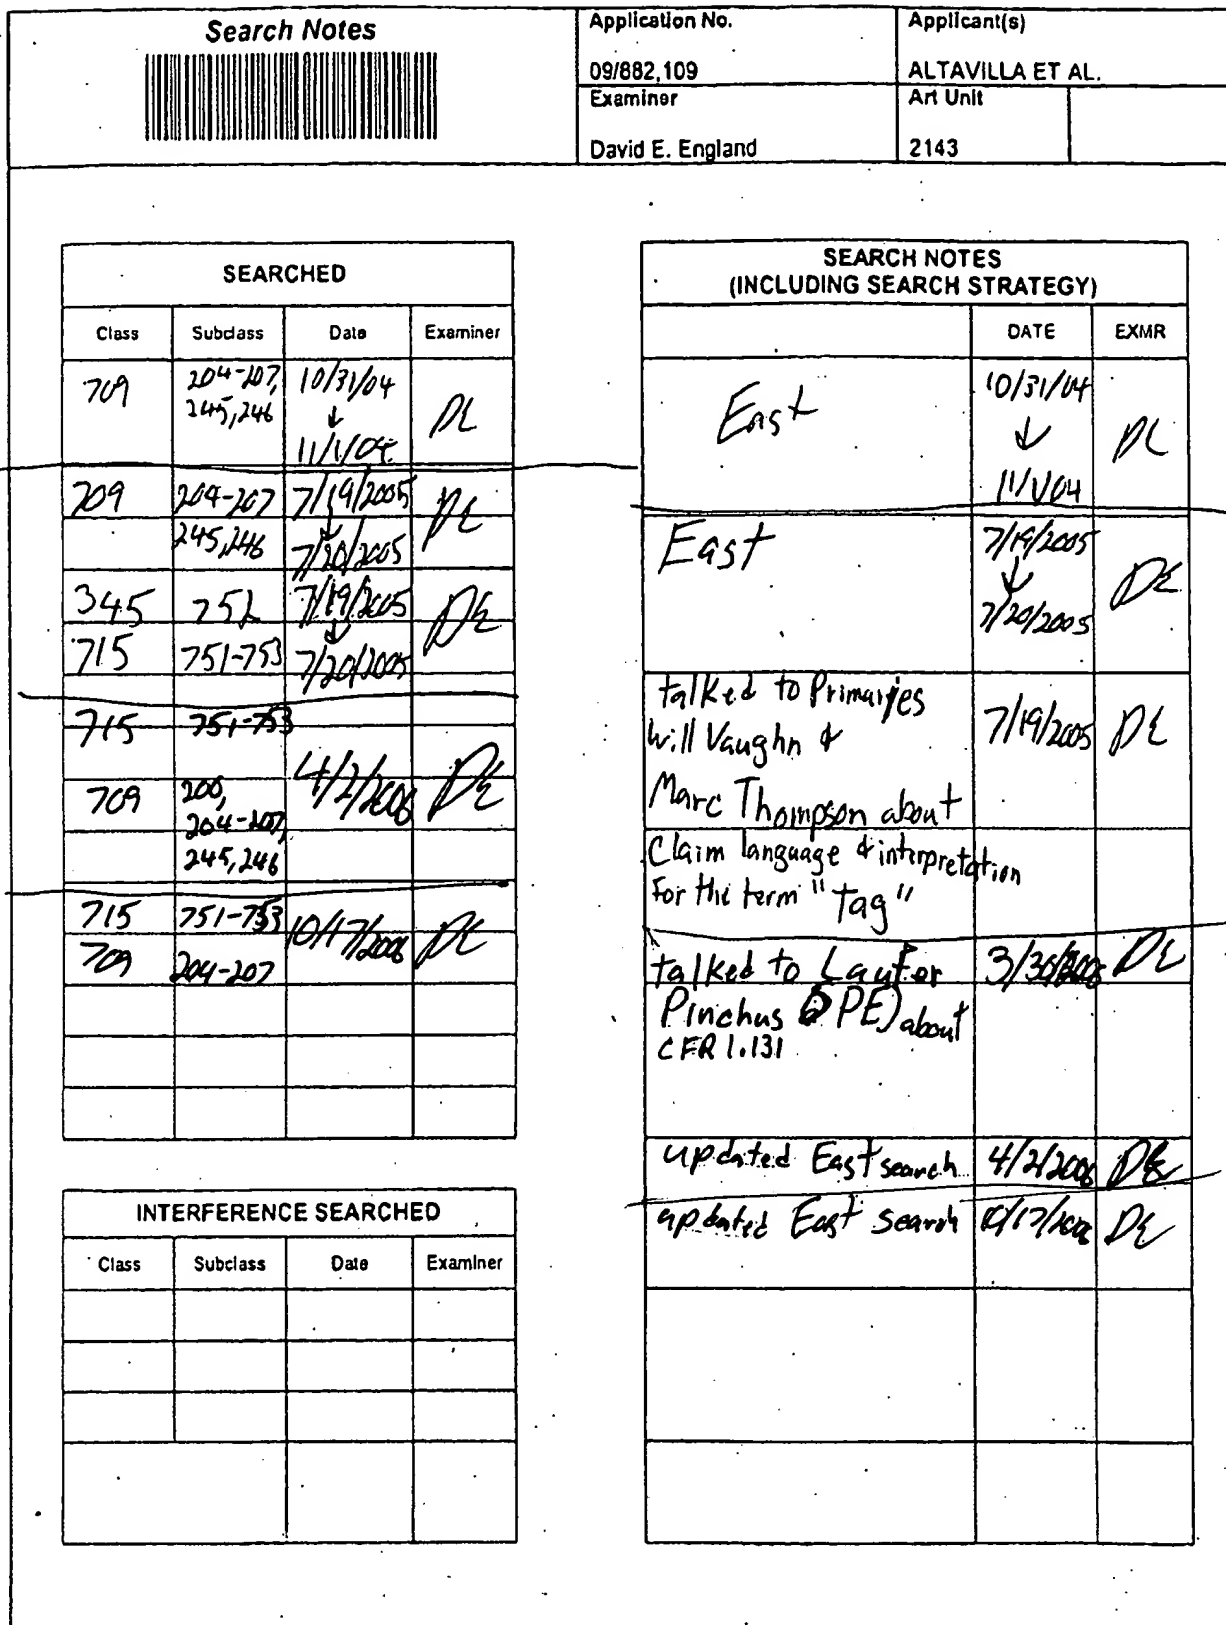 Search Notes
Application No.
Applicant(s)
09/882,109
ALTAVILLA ET AL.
Examiner
Art Unit
David E. England
2143
SEARCHED
Class Subclass Date Examiner
709 204-207, 10/31/04
245,246 ↓ DE
11/1/04
709 204-207 7/19/2005 DE
245,246 ↓
7/20/2005
345 752 7/19/2005 DE
↓
715 751-753 7/20/2005
715 751-753
4/2/2006 DE
709 200,
204-207,
245,246
715 751-753 10/17/2006 DE
709 204-207
INTERFERENCE SEARCHED
Class Subclass Date Examiner
SEARCH NOTES
(INCLUDING SEARCH STRATEGY)
DATE EXMR
East 10/31/04
↓ DE
11/1/04
East 7/19/2005
↓ DE
7/20/2005
talked to Primaries
Will Vaughn & 7/19/2005 DE
Marc Thompson about
Claim language & interpretation
For the term "Tag"
talked to Laufer 3/30/2006 DE
Pinchus PE) about
CFR 1.131
updated East search 4/2/2006 DE
updated East search 10/17/2006 DE